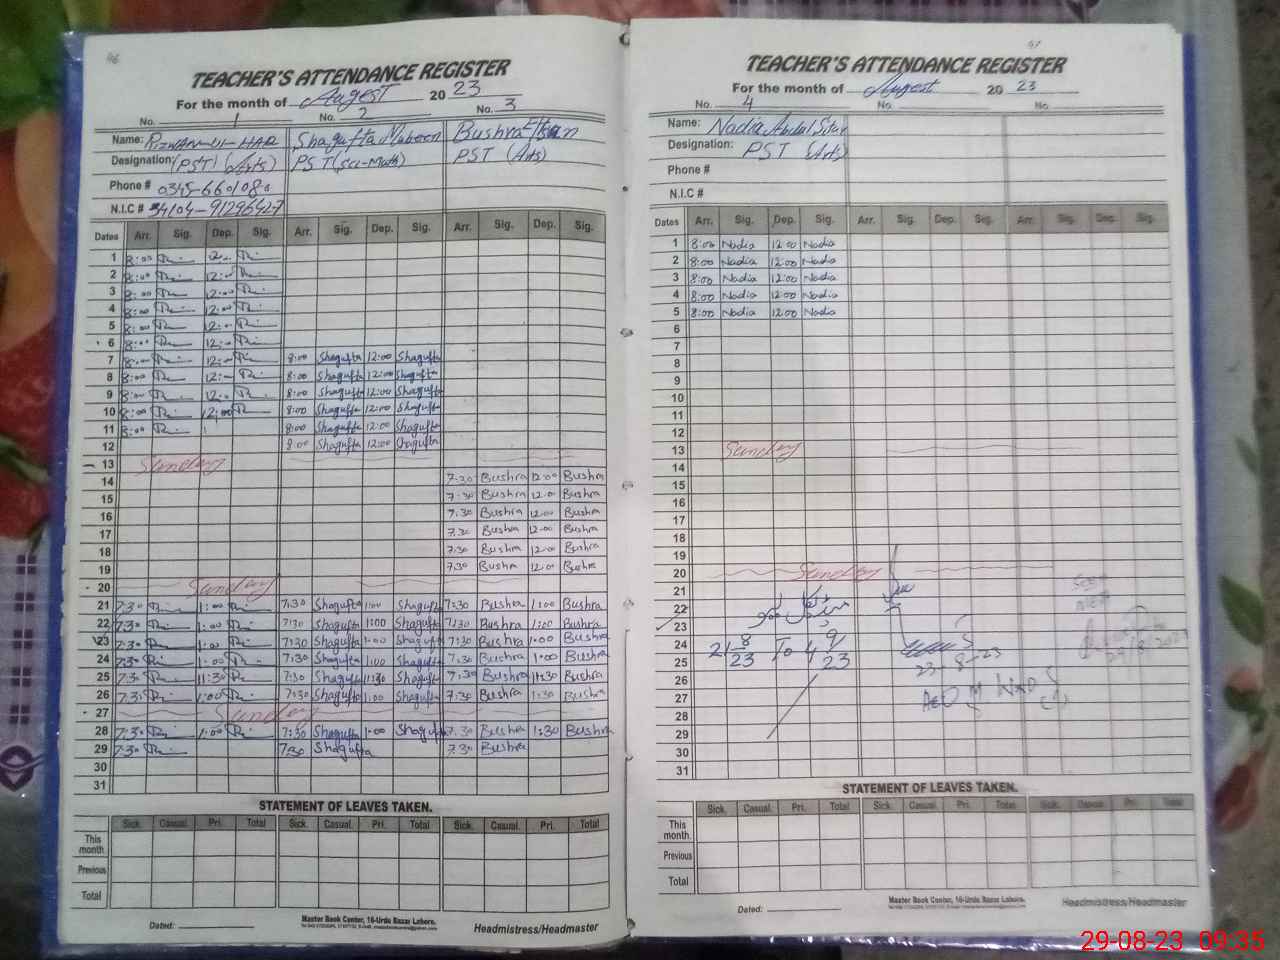 46
TEACHER'S ATTENDANCE REGISTER
For the month of August 2023
No. 1 No. 2 No. 3
Name: RIZWAN-UL-HAQ Shagufta Bushra
Designation: (PST) (Arts) PST (Sci-Math) PST (Arts)
Phone # 0345-660108
N.I.C # 34104-91296427
Dates Arr. Sig. Dep. Sig. Arr. Sig. Dep. Sig. Arr. Sig. Dep. Sig.
1 8:00 12:00
2 8:00 12:00
3 8:00 12:00
4 8:00 12:00
5 8:00 12:00
6 8:00 12:00
7 8:00 12:00 8:00 Shagufta 12:00 Shagufta
8 8:00 12:00 8:00 Shagufta 12:00 Shagufta
9 8:00 12:00 8:00 Shagufta 12:00 Shagufta
10 8:00 12:00 8:00 Shagufta 12:00 Shagufta
11 8:00 8:00 Shagufta 12:00 Shagufta
12 8:00 Shagufta 12:00 Shagufta
13 Sunday
14 7:30 Bushra 12:00 Bushra
15 7:30 Bushra 12:00 Bushra
16 7:30 Bushra 12:00 Bushra
17 7:30 Bushra 12:00 Bushra
18 7:30 Bushra 12:00 Bushra
19 7:30 Bushra 12:00 Bushra
20 Sunday
21 7:30 1:00 7:30 Shagufta 1:00 Shagufta 7:30 Bushra 1:00 Bushra
22 7:30 1:00 7:30 Shagufta 1:00 Shagufta 7:30 Bushra 1:00 Bushra
23 7:30 1:00 7:30 Shagufta 1:00 Shagufta 7:30 Bushra 1:00 Bushra
24 7:30 1:00 7:30 Shagufta 1:00 Shagufta 7:30 Bushra 1:00 Bushra
25 7:30 11:30 7:30 Shagufta 11:30 Shagufta 7:30 Bushra 11:30 Bushra
26 7:30 1:00 7:30 Shagufta 1:00 Shagufta 7:30 Bushra 1:30 Bushra
27 Sunday
28 7:30 1:00 7:30 Shagufta 1:00 Shagufta 7:30 Bushra 1:30 Bushra
29 7:30 7:30 Shagufta 7:30 Bushra
30
31
STATEMENT OF LEAVES TAKEN.
Sick. Casual. Pri. Total Sick. Casual. Pri. Total Sick. Casual. Pri. Total
This month.
Previous
Total
Dated:
Master Book Center, 16-Urdu Bazar Lahore.
Headmistress/Headmaster
47
TEACHER'S ATTENDANCE REGISTER
For the month of August 2023
No. 4 No. No.
Name: Nadia Abdul
Designation: PST (Arts)
Phone #
N.I.C #
Dates Arr. Sig. Dep. Sig. Arr. Sig. Dep. Sig. Arr. Sig. Dep. Sig.
1 8:00 Nadia 12:00 Nadia
2 8:00 Nadia 12:00 Nadia
3 8:00 Nadia 12:00 Nadia
4 8:00 Nadia 12:00 Nadia
5 8:00 Nadia 12:00 Nadia
6
7
8
9
10
11
12
13 Sunday
14
15
16
17
18
19
20 Sunday
21
22
23
24 21-8-23 To 4-9-23
25 23-8-23
26
27
28
29
30
31
STATEMENT OF LEAVES TAKEN.
Sick. Casual. Pri. Total Sick. Casual. Pri. Total Sick. Casual. Pri. Total
This month.
Previous
Total
Dated:
Master Book Center, 16-Urdu Bazar Lahore.
Headmistress/Headmaster
29-08-23 09:35